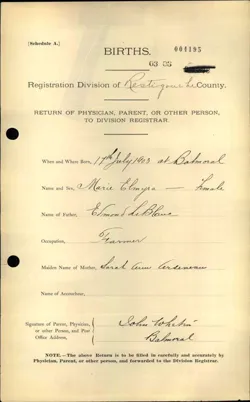 [Schedule A.]
BIRTHS.
001195
Registration Division of Restigouche County.
RETURN OF PHYSICIAN, PARENT, OR OTHER PERSON,
TO DIVISION REGISTRAR.
When and Where Born, 17th July 1903 at Balmoral
Name and Sex, Marie Elmyre — Female
Name of Father, Edmond LeBlanc
Occupation, Farmer
Maiden Name of Mother, Sarah Ann
Name of Accoucheur,
Signature of Parent, Physician,
or other Person, and Post
Office Address,
John White
Balmoral
NOTE.—The above Return is to be filled in carefully and accurately by
Physician, Parent, or other person, and forwarded to the Division Registrar.